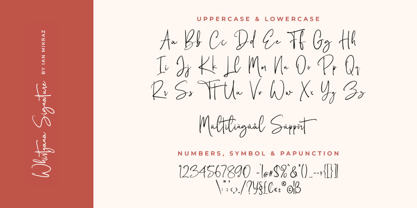 Whistgana Signature BY IAN MIKRAZ
UPPERCASE & LOWERCASE
Aa Bb Cc Dd Ee Ff Gg Hh
Ii Jj Kk Ll Mm Nn Oo Pp Qq
Rr Ss Tt Uu Vv Ww Xx Yy Zz
Multilingual Support
NUMBERS, SYMBOL & PAPUNCTION
1234567890